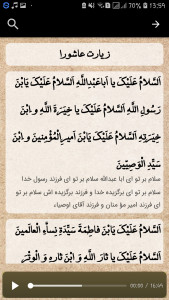 13:59
72%
زیارت عاشورا
اَلسَّلامُ عَلَیْکَ یا اَباعَبْدِاللَّهِ اَلسَّلامُ عَلَیْکَ یَابْنَ
رَسُولِ اللَّهِ اَلسَّلامُ عَلَیْکَ یا خِیَرَةَ اللَّهِ و َابْنَ
خِیَرَتِهِ اَلسَّلامُ عَلَیْکَ یَابْنَ اَمیرِالْمُؤْمِنینَ و َابْنَ
سَیِّدِ الْوَصِیّینَ
سلام بر تو ای ابا عبدالله سلام بر تو ای فرزند رسول خدا
سلام بر تو ای برگزیده خدا و فرزند برگزیده اش سلام بر تو
ای فرزند امیر مؤ منان و فرزند آقای اوصیاء
اَلسَّلامُ عَلَیْکَ یَابْنَ فاطِمَةَ سَیِّدَةِ نِساَّءِ الْعالَمینَ
اَلسَّلامُ عَلَیْکَ یا ثارَ اللَّهِ و َابْنَ ثارِهِ و َالْوِتْرَ
00:00 /